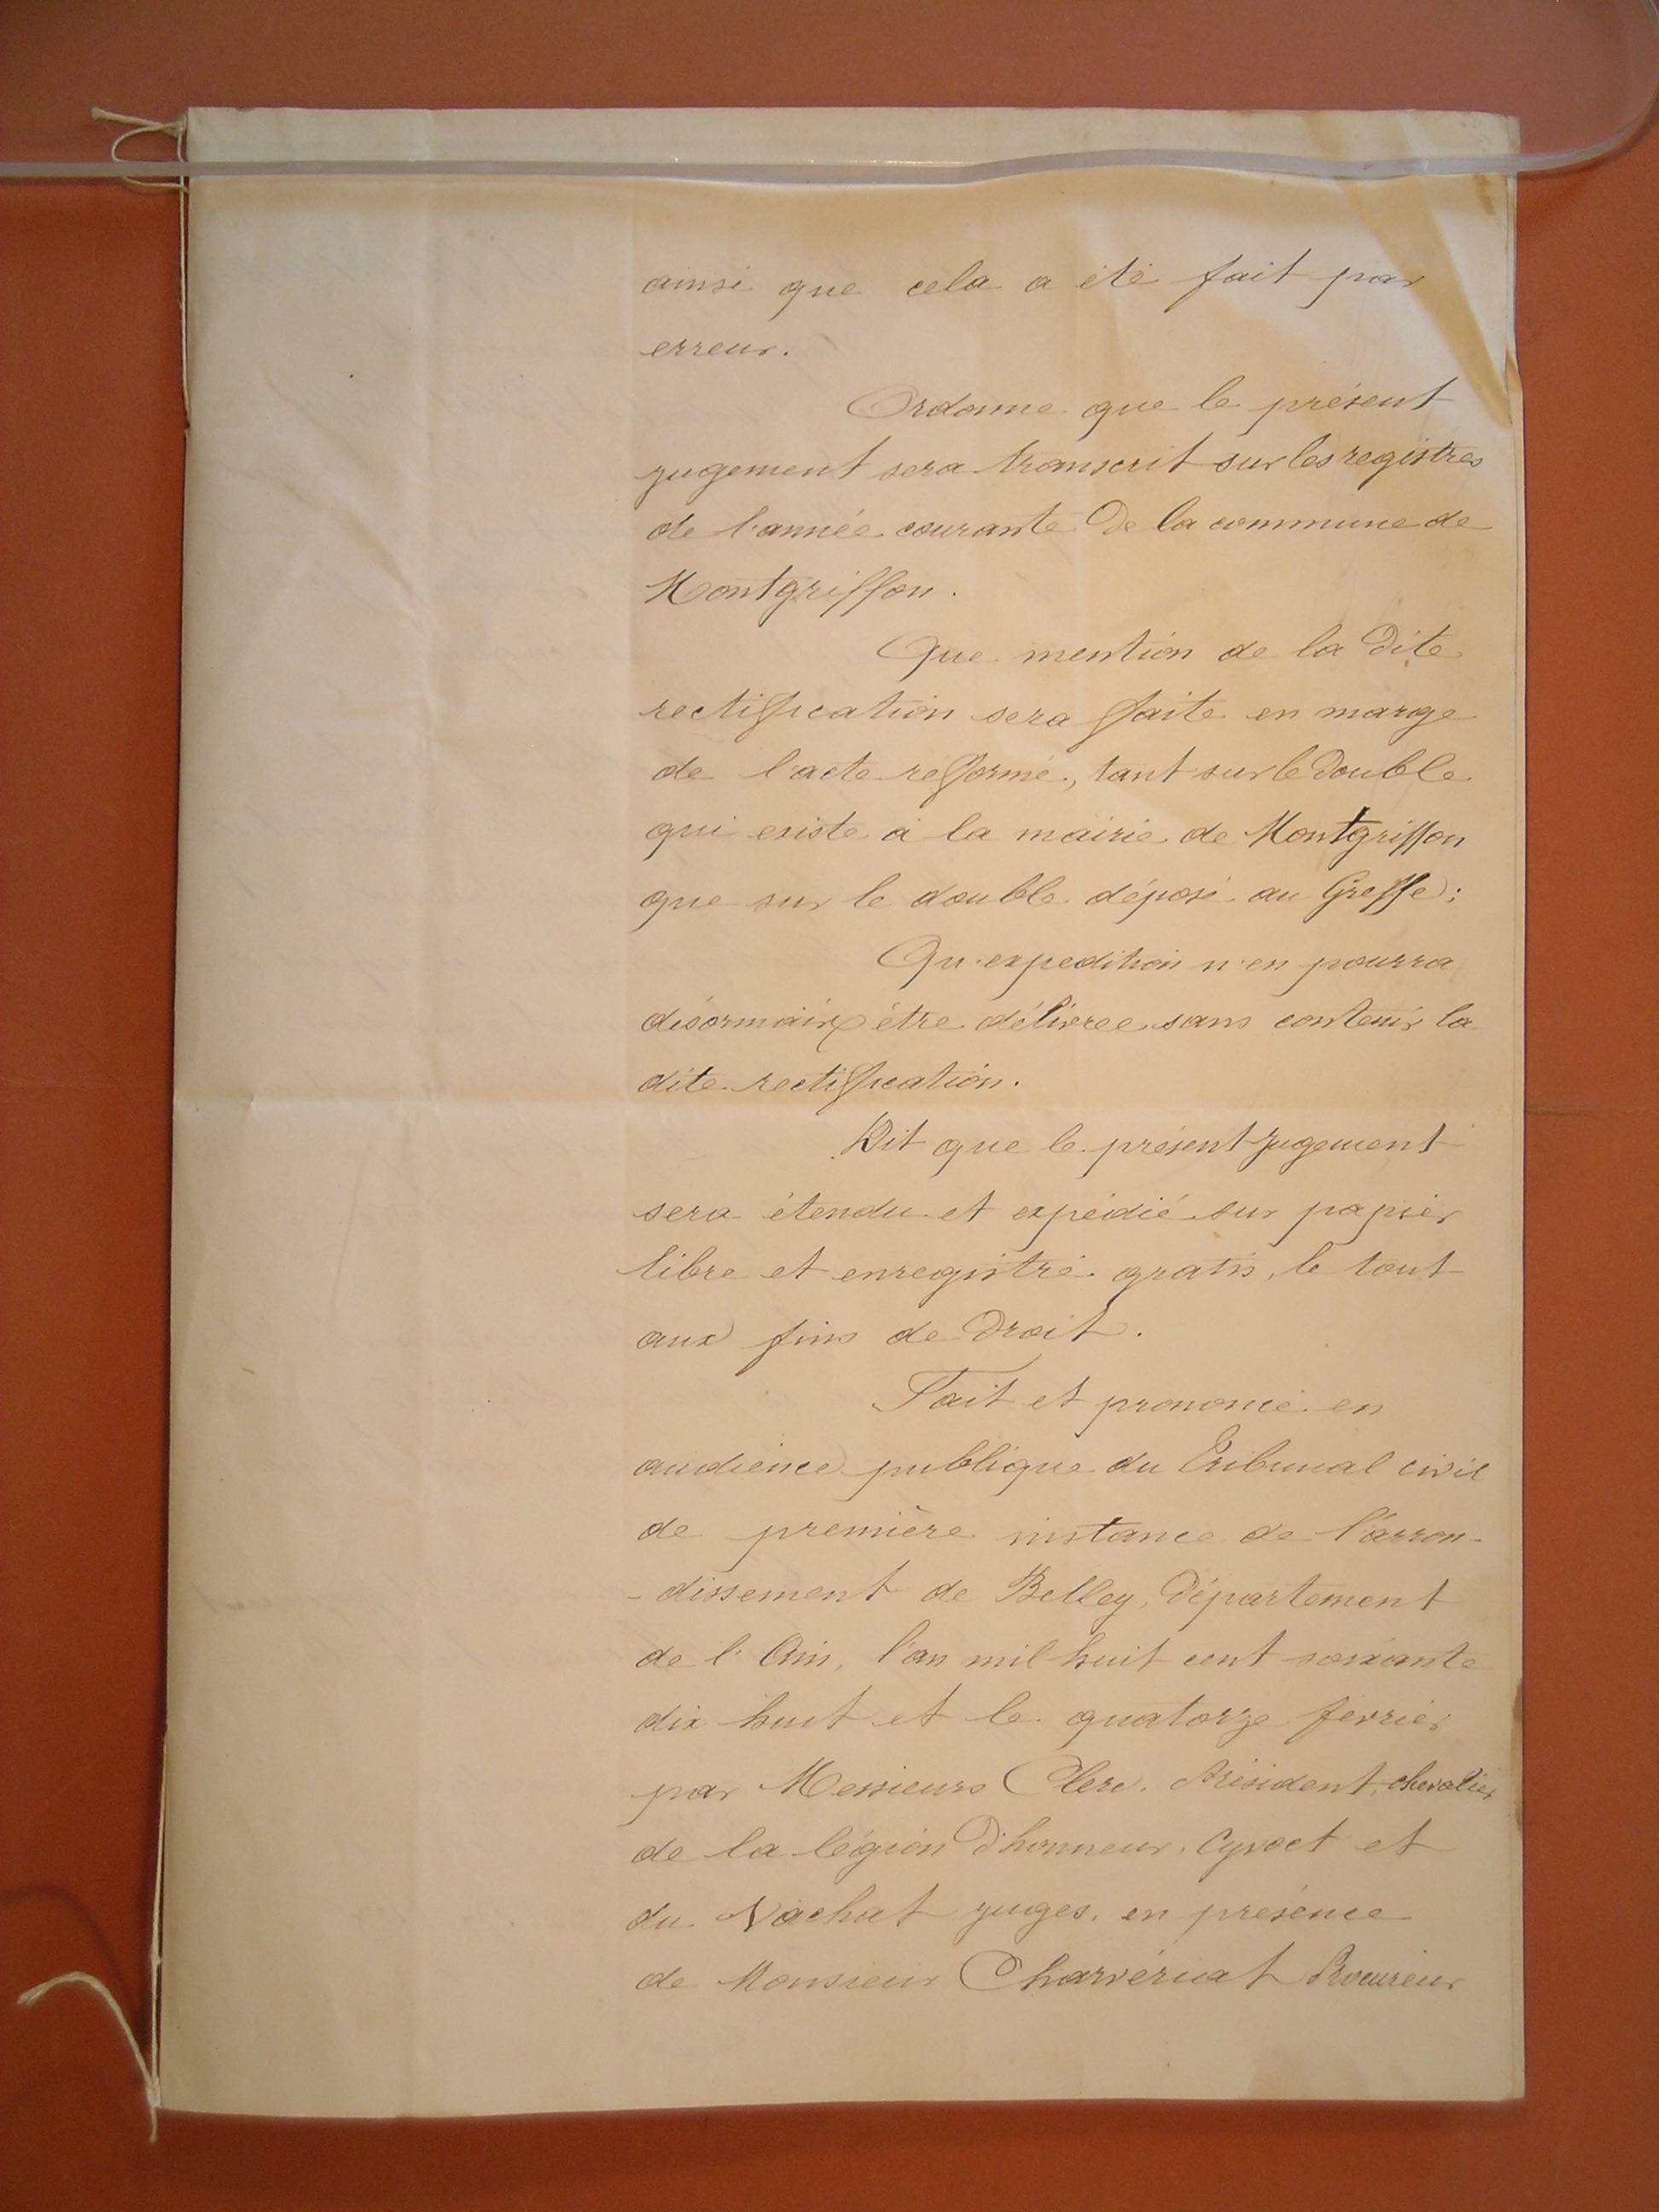 ainsi que cela a été fait par
erreur.
Ordonne que le présent
jugement sera transcrit sur les registres
de l'année courante de la commune de
Montgriffon.
Que mention de la dite
rectification sera faite en marge
de l'acte reformé, tant sur le double
qui existe à la mairie de Montgriffon
que sur le double déposé au Greffe;
Qu'expedition n'en pourra
désormaix être délivree sans contenir la
dite rectification.
Dit que le présent jugement
sera étendu et expédié sur papier
libre et enregistré gratis, le tout
aux fins de droit.
Fait et prononcé en
audience publique du Tribunal civil
de première instance de l'arron-
-dissement de Belley, Département
de l'Ain, l'an mil huit cent soixante
dix huit et le quatorze février
par Messieurs Clerc, Président, chevalier
de la légion d'honneur, Cyvoct et
du Vachat juges, en présence
de Monsieur Charvériat Procureur